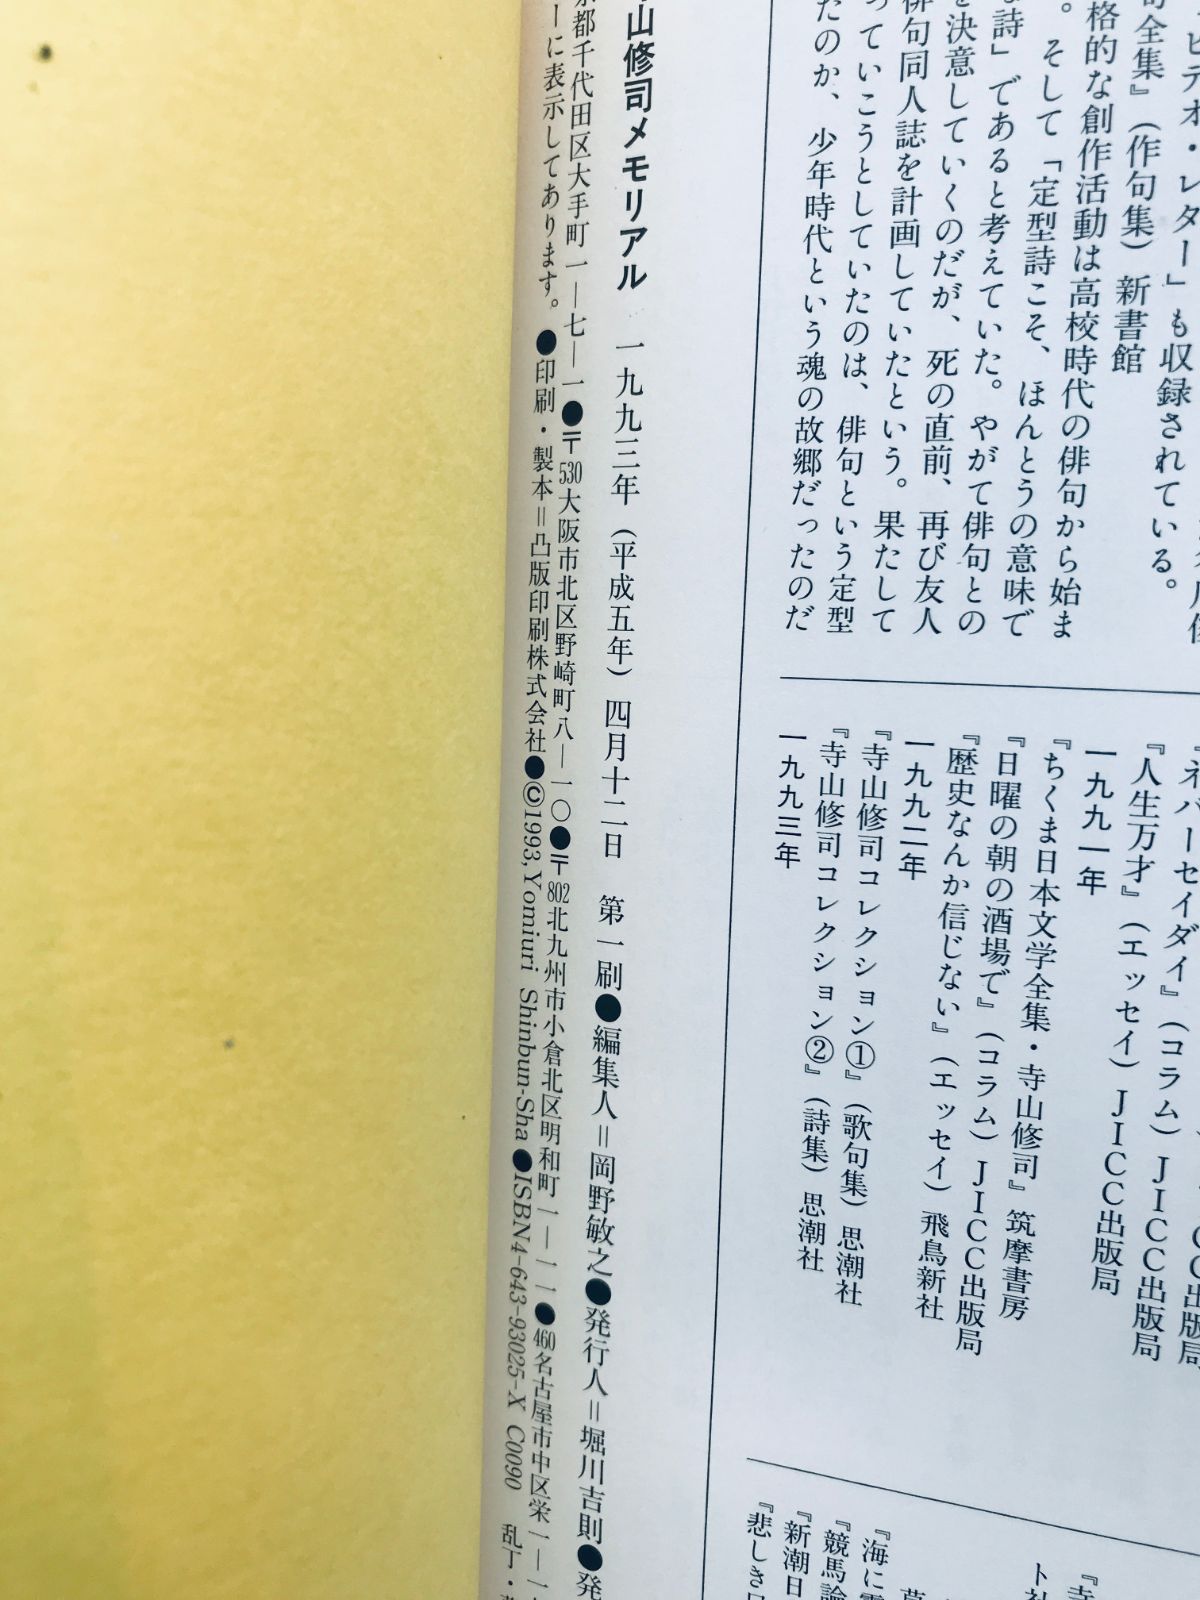 ビデオ・レター」も収録されている。
句全集』（作句集）　新書館
格的な創作活動は高校時代の俳句から始ま
。そして「定型詩こそ、ほんとうの意味で
な詩」であると考えていた。やがて俳句との
を決意していくのだが、死の直前、再び友人
俳句同人誌を計画していたという。果たして
っていこうとしていたのは、俳句という定型
たのか、少年時代という魂の故郷だったのだ
『ネバーセイダイ』（コラム）ＪＩＣＣ出版局
『人生万才』（エッセイ）ＪＩＣＣ出版局
一九九一年
『ちくま日本文学全集・寺山修司』筑摩書房
『日曜の朝の酒場で』（コラム）ＪＩＣＣ出版局
『歴史なんか信じない』（エッセイ）飛鳥新社
一九九二年
『寺山修司コレクション①』（歌句集）思潮社
『寺山修司コレクション②』（詩集）思潮社
一九九三年
『寺
ト社
『海に
『競馬論
『新潮日
『悲しき口
山修司メモリアル　一九九三年（平成五年）四月十二日　第一刷●編集人＝岡野敏之●発行人＝堀川吉則●発
京都千代田区大手町一―七―一●〒530大阪市北区野崎町八―一〇●〒802北九州市小倉北区明和町一―一一●460名古屋市中区栄一―一
ーに表示してあります。●印刷・製本＝凸版印刷株式会社●©1993,Yomiuri Shinbun-Sha●ISBN4-643-93025-X C0090　乱丁・